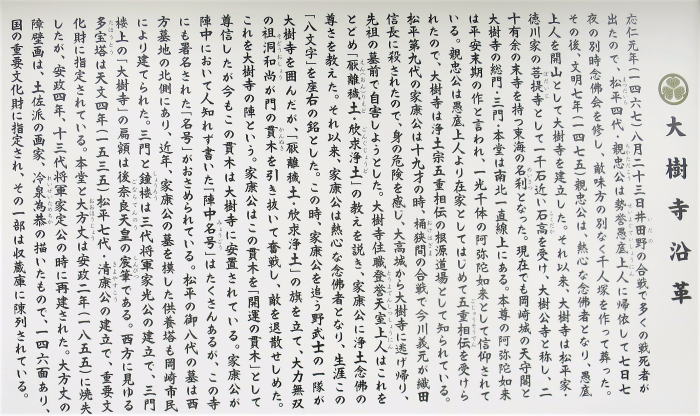 大樹寺沿革
応仁元年(一四六七)八月二十三日井田野の合戦で多くの戦死者が
出たので、松平四代、親忠公は勢誉愚底上人に帰依して七日七
夜の別時念佛会を修し、敵味方の別なく千人塚を作って葬った。
その後、文明七年(一四七五)親忠公は、熱心な念佛者となり、愚底
上人を開山として大樹寺を建立した。それ以来、大樹寺は松平家・
徳川家の菩提寺として一千石近い石高を受け、大樹公寺と称し、二
十有余の末寺を持つ東海の名刹となった。現在でも岡崎城の天守閣と
大樹寺の総門・三門・本堂は南北一直線上にある。本尊の阿弥陀如来
は平安末期の作と言われ、一光千体の阿弥陀如来として信仰されて
いる。親忠公は愚底上人より在家としてはじめて五重相伝を受けら
れたので、大樹寺は浄土宗五重相伝の根源道場として知られている。
松平第九代の家康公は十九才の時、桶狭間の合戦で今川義元が織田
信長に殺されたので、身の危険を感じ、大高城から大樹寺に逃げ帰り、
先祖の墓前で自害しようとした。大樹寺住職登誉天室上人はこれを
とどめ「厭離穢土・欣求浄土」の教えを説き、家康公に浄土念佛の
尊さを教えた。それ以来、家康公は熱心な念佛者となり、生涯この
「八文字」を座右の銘とした。この時、家康公を追う野武士の一隊が
大樹寺を囲んだが、「厭離穢土・欣求浄土」の旗を立て、大力無双
の祖洞和尚が門の貫木を引き抜いて奮戦し、敵を退散せしめた。
これを大樹寺の陣という。家康公はこの貫木を「開運の貫木」として
尊信したが今もこの貫木は大樹寺に安置されている。家康公が
陣中において人知れず書いた「陣中名号」はたくさんあるが、この寺
にも署名された「名号」がおさめられている。松平の御八代の墓は西
方墓地の北側にあり、近年、家康公の墓を模した供養塔も岡崎市民
により建てられた。三門と鐘楼は三代将軍家光公の建立で、三門
楼上の「大樹寺」の扁額は後奈良天皇の宸筆である。西方に見ゆる
多宝塔は天文四年(一五三五)松平七代・清康公の建立で、重要文
化財に指定されている。本堂と大方丈は安政二年(一八五五)に焼失
したが、安政四年、十三代将軍家定公の時に再建された。大方丈の
障壁画は、土佐派の画家、冷泉為恭の描いたもので、一四六面あり、
国の重要文化財に指定され、その一部は収蔵庫に陳列されている。